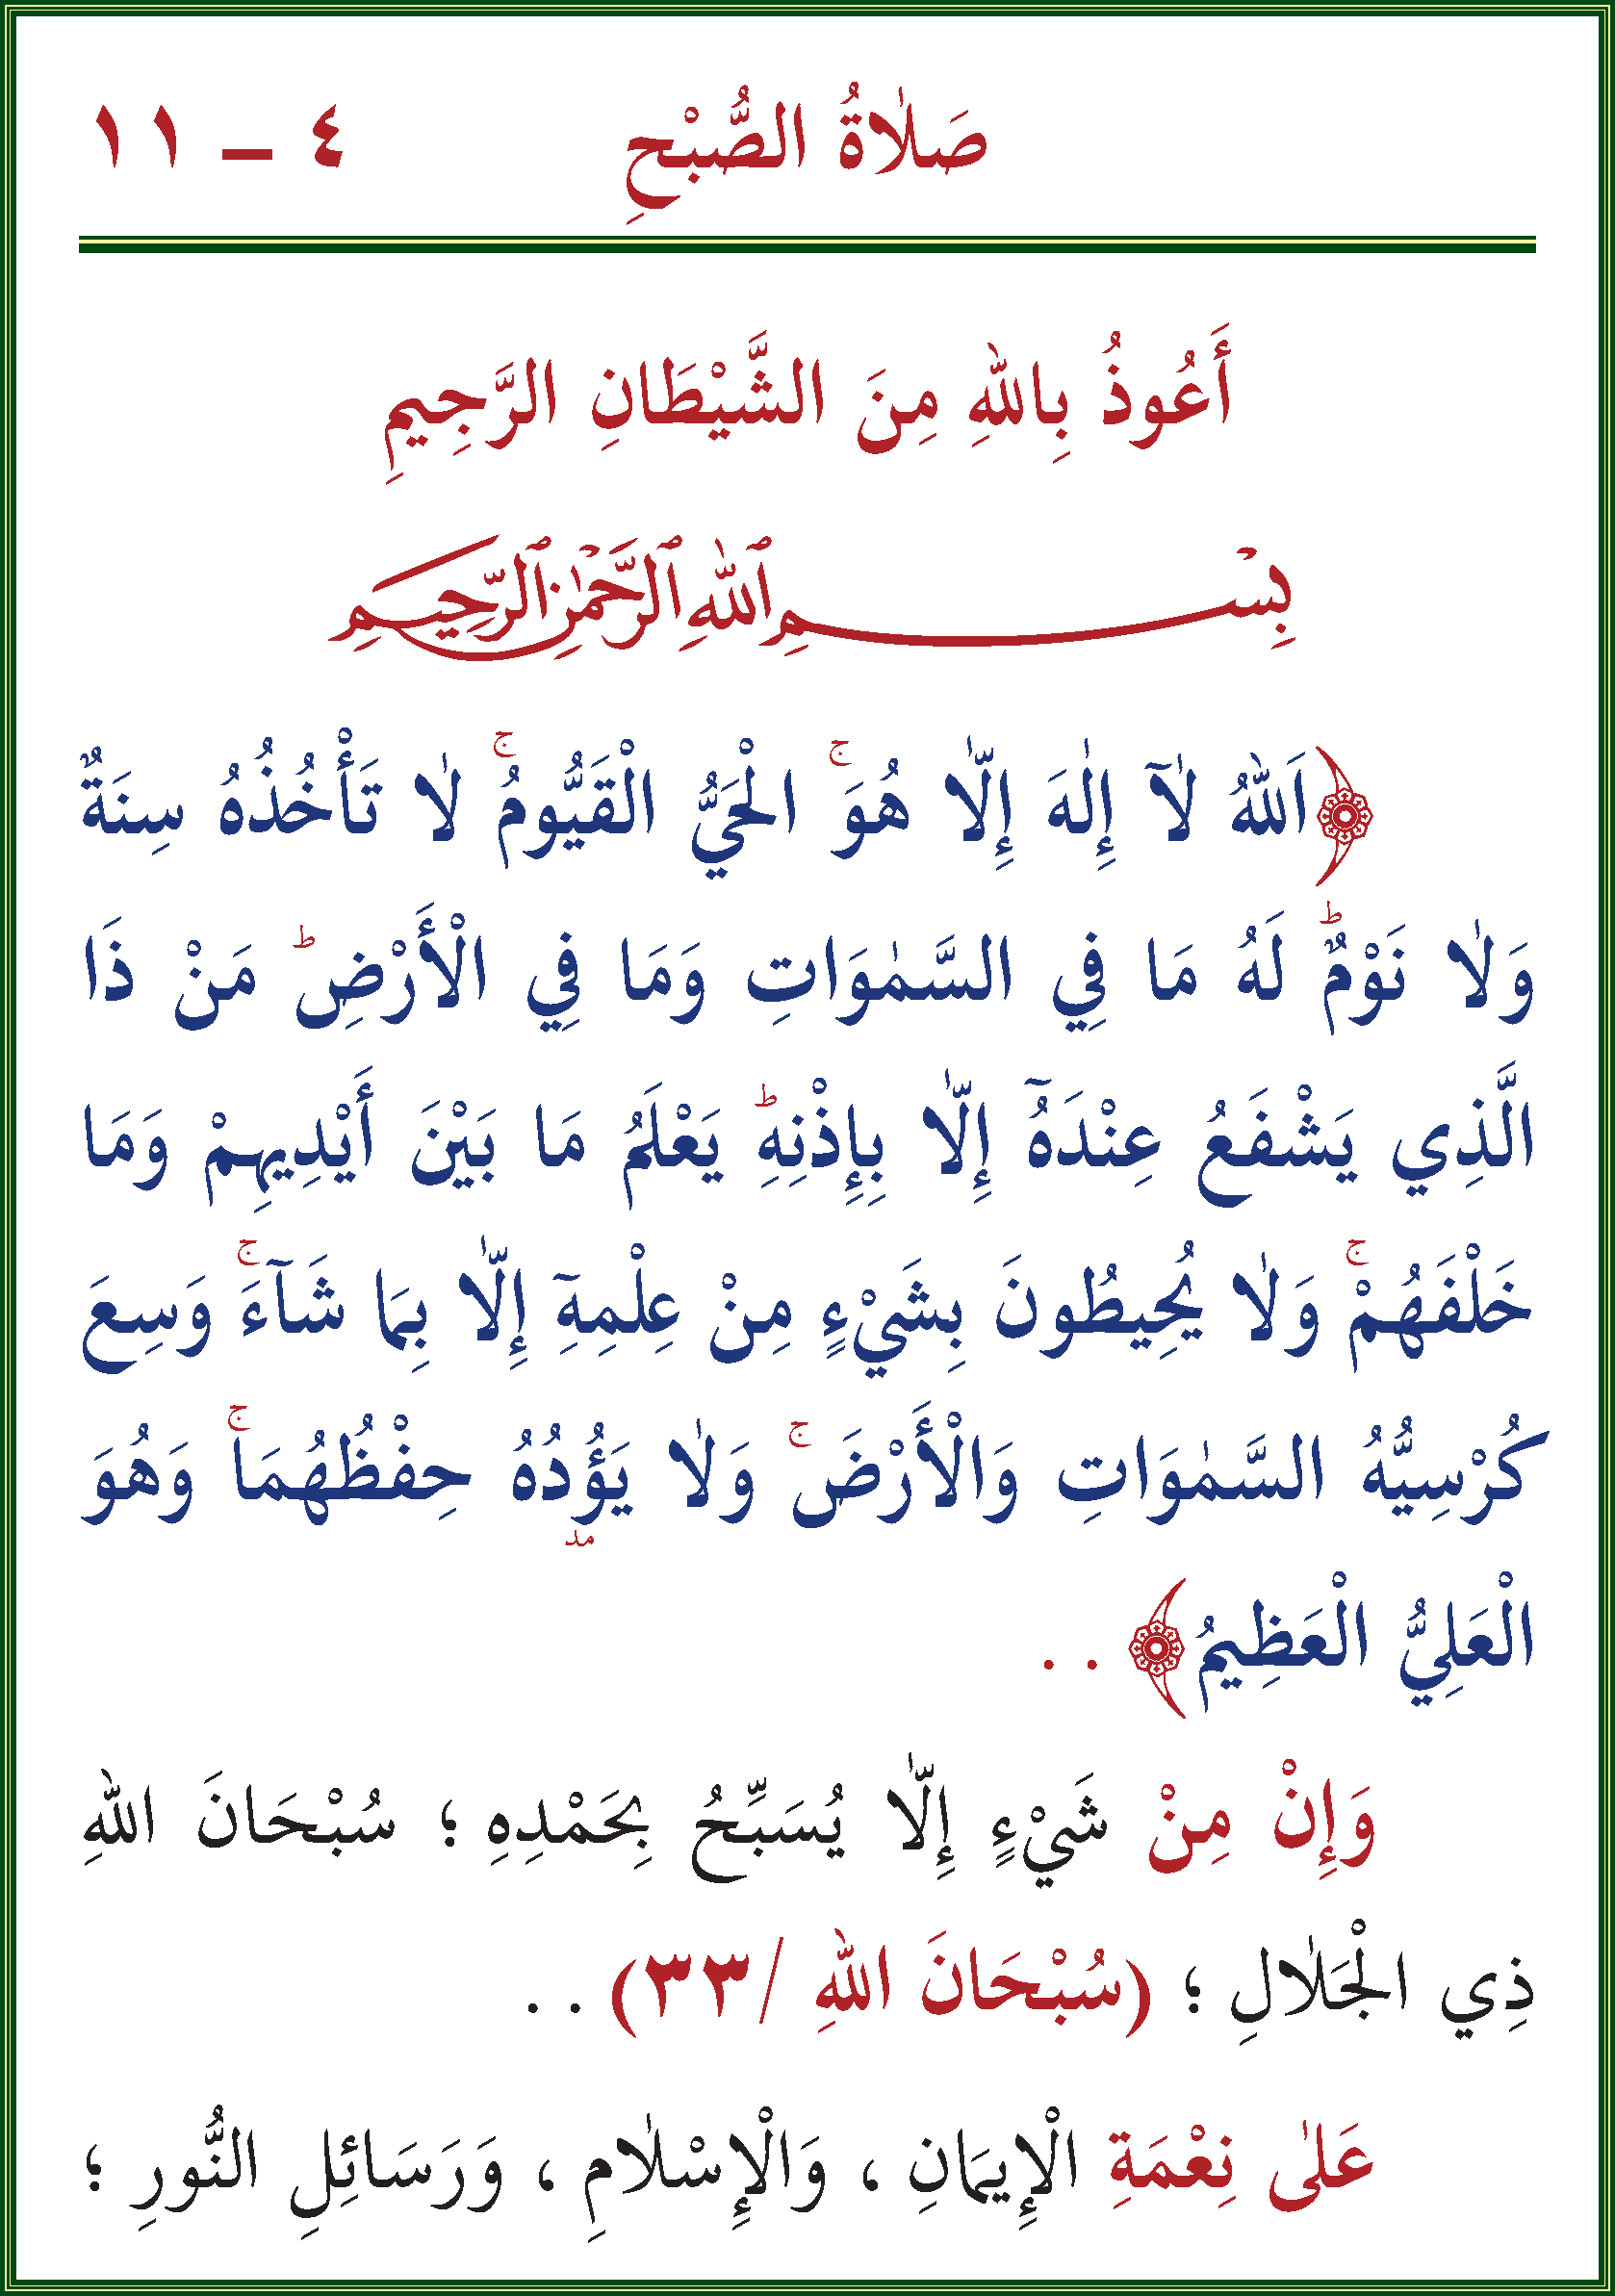 صَلَاةُ الصُّبْحِ ٤ – ١١
أَعُوذُ بِاللّٰهِ مِنَ الشَّيْطَانِ الرَّجِيمِ
بِسْمِ ٱللّٰهِ ٱلرَّحْمٰنِ ٱلرَّحِيمِ
﴿اَللّٰهُ لَآ إِلٰهَ إِلَّا هُوَۚ الْحَيُّ الْقَيُّومُۚ لَا تَأْخُذُهُ سِنَةٌ
وَلَا نَوْمٌؕ لَهُ مَا فِي السَّمٰوَاتِ وَمَا فِي الْأَرْضِؕ مَنْ ذَا
الَّذِي يَشْفَعُ عِنْدَهُٓ إِلَّا بِإِذْنِهِؕ يَعْلَمُ مَا بَيْنَ أَيْدِيهِمْ وَمَا
خَلْفَهُمْۚ وَلَا يُحِيطُونَ بِشَيْءٍ مِنْ عِلْمِهِٓ إِلَّا بِمَا شَآءَۚ وَسِعَ
كُرْسِيُّهُ السَّمٰوَاتِ وَالْأَرْضَۚ وَلَا يَؤُدُهُ حِفْظُهُمَاۚ وَهُوَ
مد
الْعَلِيُّ الْعَظِيمُ﴾ . .
وَإِنْ مِنْ شَيْءٍ إِلَّا يُسَبِّحُ بِحَمْدِهِ ؛ سُبْحَانَ اللّٰهِ
ذِي الْجَلَالِ ؛ (سُبْحَانَ اللّٰهِ /٣٣) . .
عَلٰى نِعْمَةِ الْإِيمَانِ ، وَالْإِسْلَامِ ، وَرَسَائِلِ النُّورِ ؛